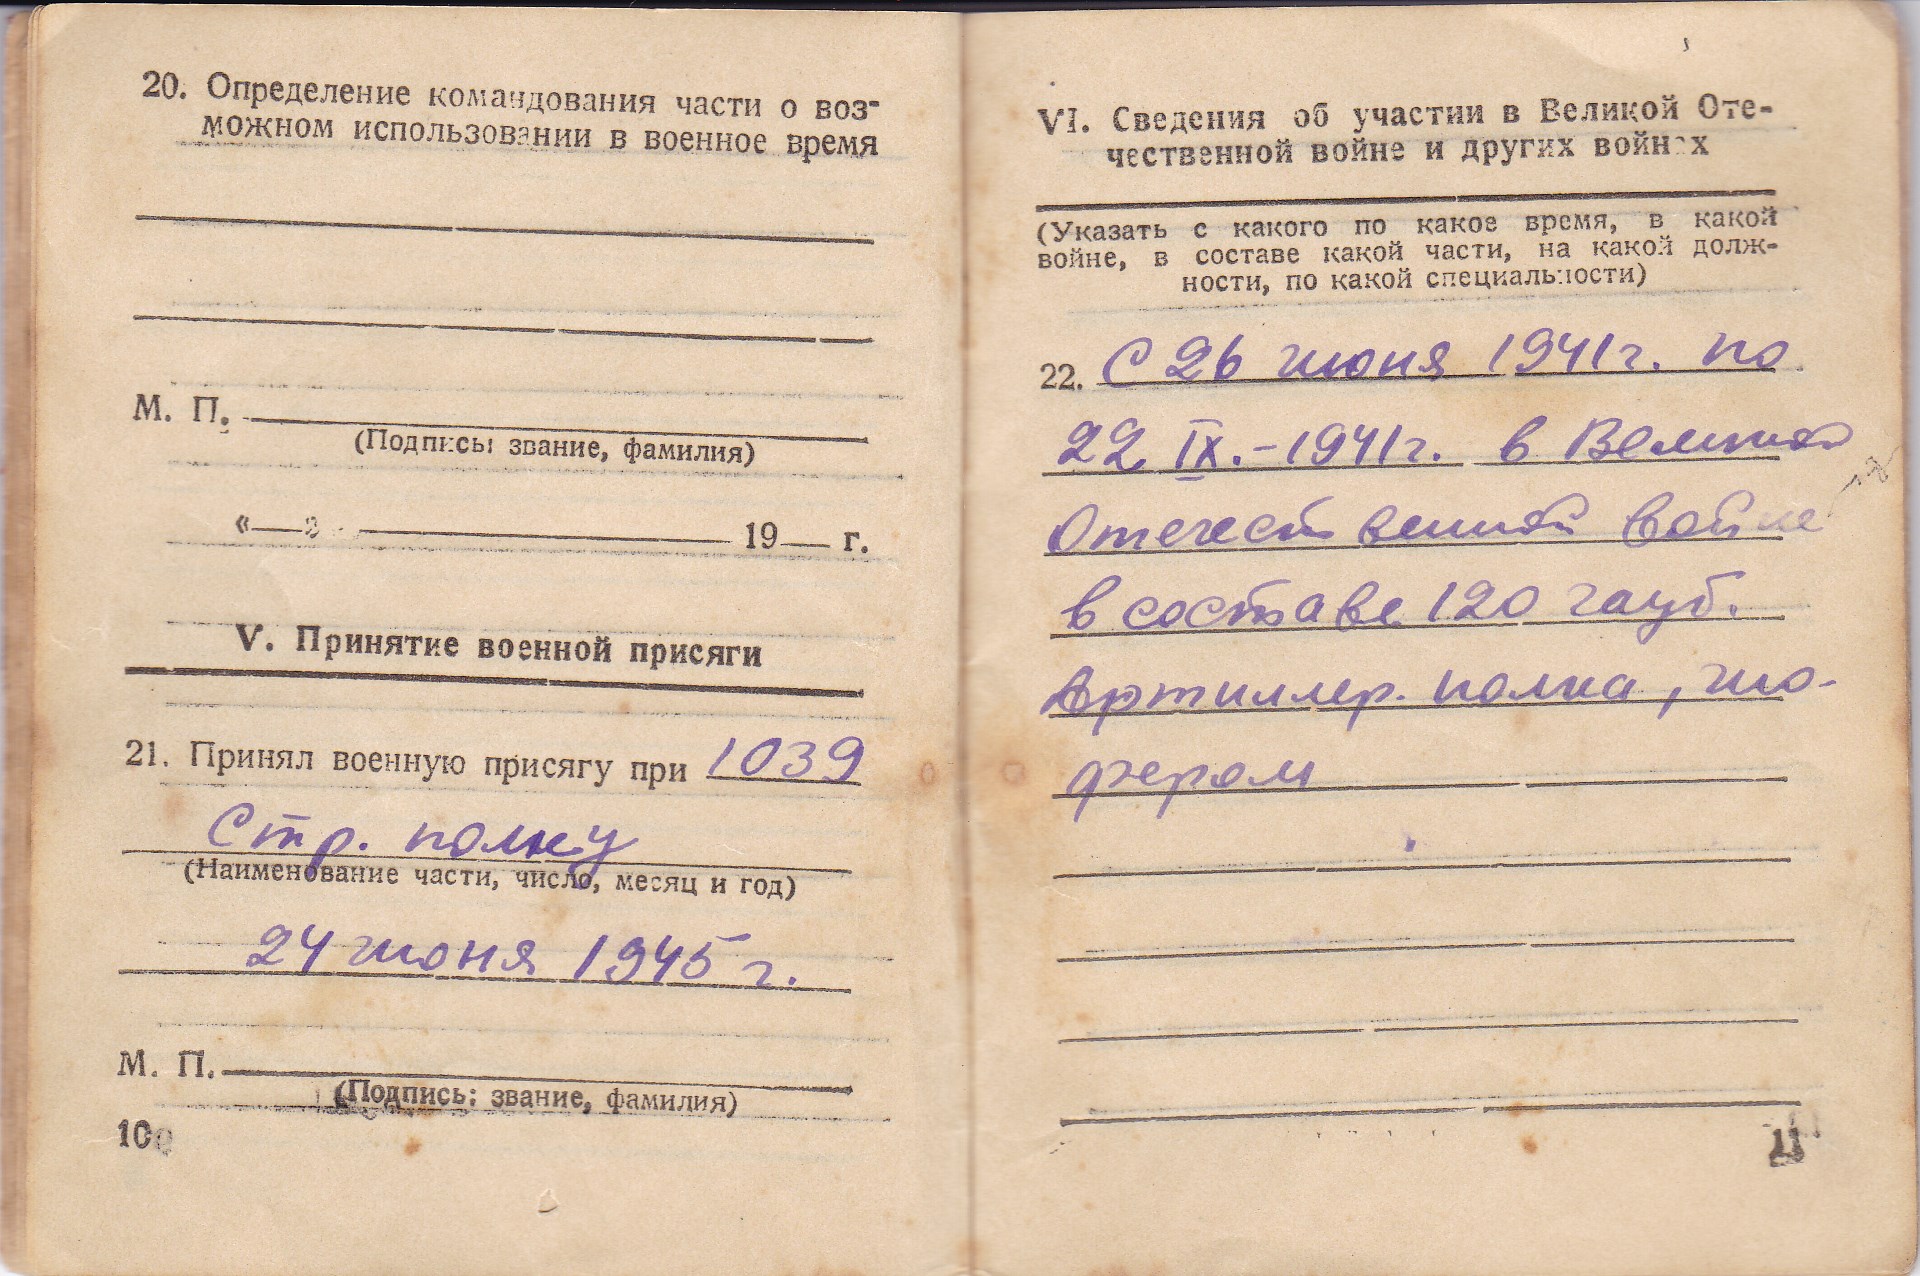 20. Определение командования части о воз-
можном использовании в военное время
М. П.
(Подпись: звание, фамилия)
«—» 19— г.
V. Принятие военной присяги
21. Принял военную присягу при 1039
Стр. полку
(Наименование части, число, месяц и год)
24 июня 1945 г.
М. П.
(Подпись: звание, фамилия)
10
VI. Сведения об участии в Великой Оте-
чественной войне и других войнах
(Указать с какого по какое время, в какой
войне, в составе какой части, на какой долж-
ности, по какой специальности)
22. С 26 июня 1941 г. по
22 IX.-1941 г. в Великой
Отечественной войне
в составе 120 гауб.
Артиллер. полка, шо-
фером
11